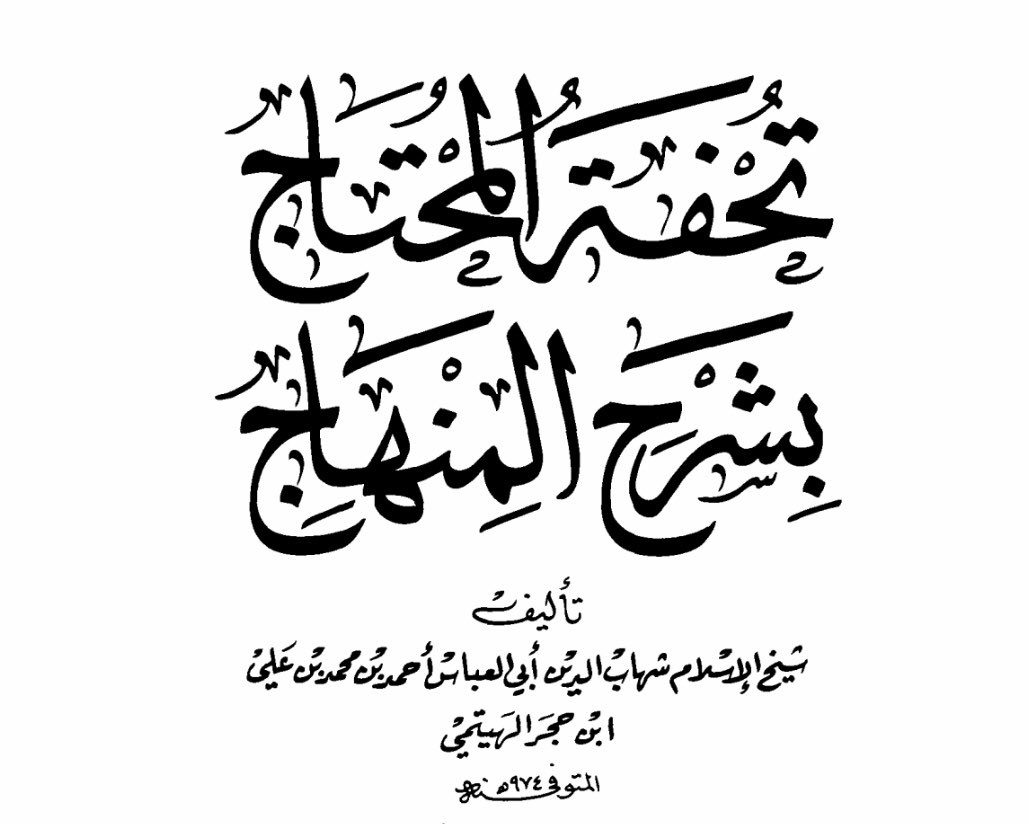 تحفة المحتاج
بشرح المنهاج
تأليف
شيخ الإسلام شهاب الدين أبي العباس أحمد بن محمد بن علي
ابن حجر الهيتمي
المتوفى سنة ٩٧٤ هـ